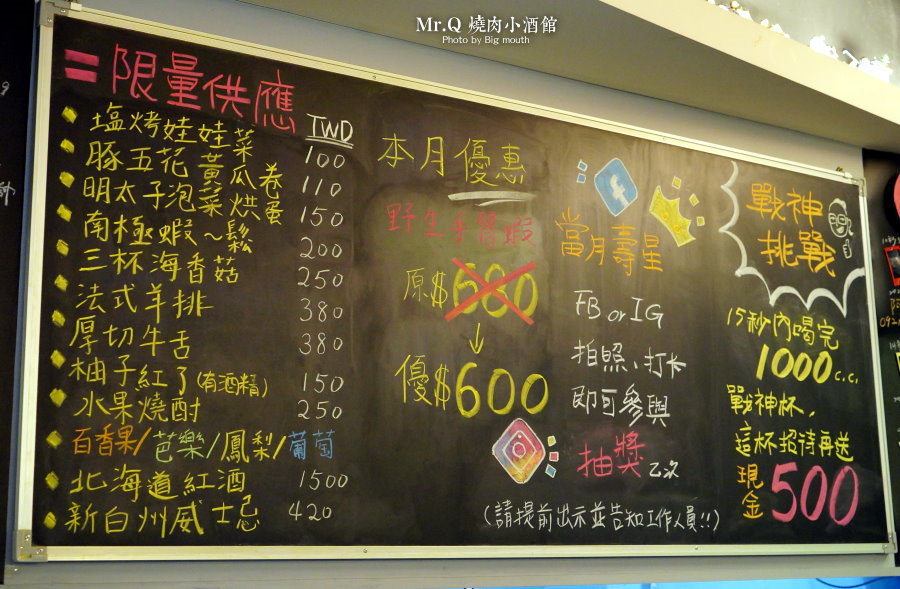 Mr.Q 燒肉小酒館
Photo by Big mouth
限量供應
TWD
塩烤娃娃菜 100
豚五花黃瓜卷 110
明太子泡菜烘蛋 150
南極蝦~鬆 200
三杯海香菇 250
法式羊排 380
厚切牛舌 380
柚子紅了(有酒精) 150
水果燒酎 250
百香果/芭樂/鳳梨/葡萄
北海道紅酒 1500
新白州威士忌 420
本月優惠
野生手臂蝦
原$680
↓
優$600
當月壽星
FB or IG
拍照、打卡
即可參與
抽獎乙次
(請提前出示並告知工作人員!!)
戰神
挑戰
15秒內喝完
1000c.c.
戰神杯,
這杯招待再送
現金500